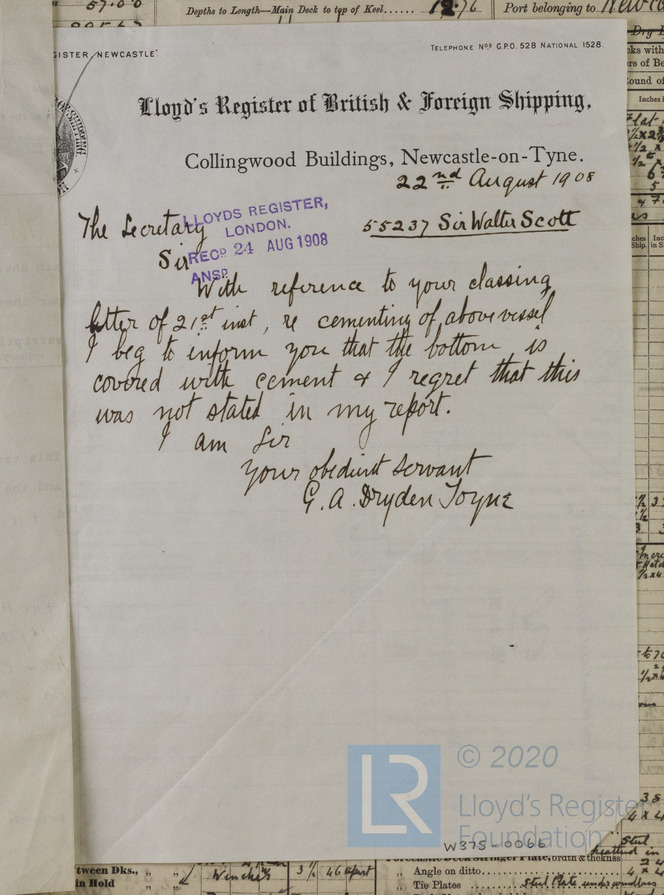 57.0.0
Depths to Length—Main Deck to top of Keel...... 12.76
Port belonging to Newc
ISTER, NEWCASTLE"
TELEPHONE Nos G.P.O. 528 NATIONAL 1528.
Lloyd's Register of British & Foreign Shipping,
Collingwood Buildings, Newcastle-on-Tyne.
22nd August 1908
The Secretary
LLOYDS REGISTER,
LONDON.
RECD 24 AUG 1908
ANSD.
55237 Sir Walter Scott
Sir
With reference to your classing
letter of 21st inst, re cementing of above vessel
I beg to inform you that the bottom is
covered with cement & I regret that this
was not stated in my report.
I am Sir
Your obedient Servant
G. A. Dryden Toyne
LR
© 2020
Lloyd's Register
Foundation
W375-0066
tween Dks., " "
in Hold " "
Winches 3½ 46 apart
Forecastle Deck Stringer Plate, breadth & thickness
" Angle on ditto
" Tie Plates